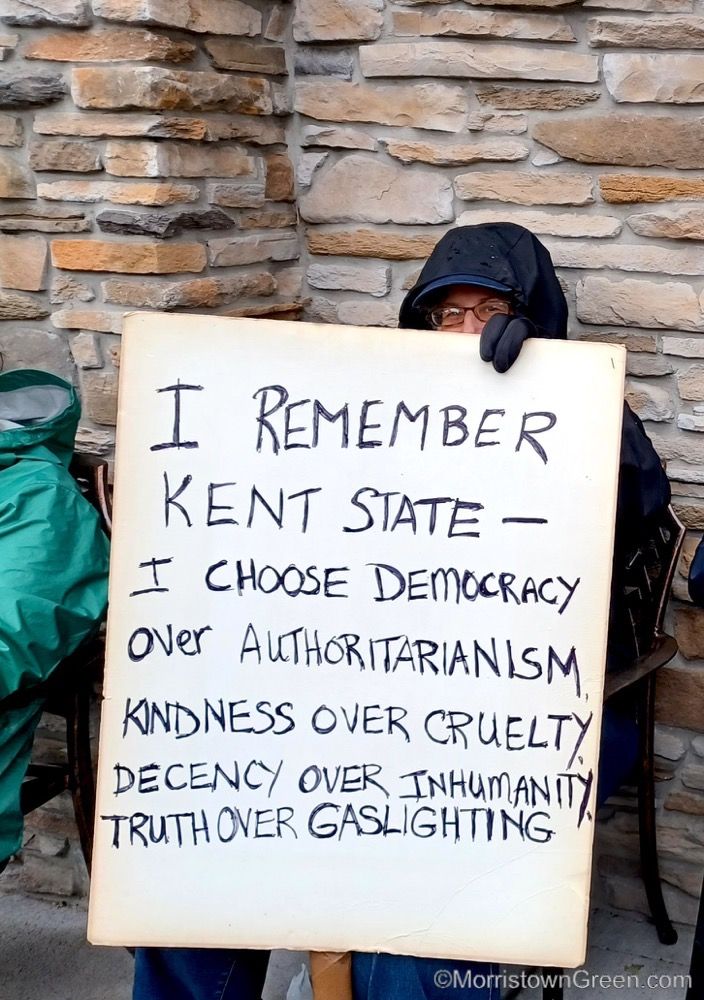 I REMEMBER
KENT STATE —
I CHOOSE DEMOCRACY
over AUTHORITARIANISM,
KINDNESS OVER CRUELTY,
DECENCY OVER INHUMANITY,
TRUTH OVER GASLIGHTING
©MorristownGreen.com